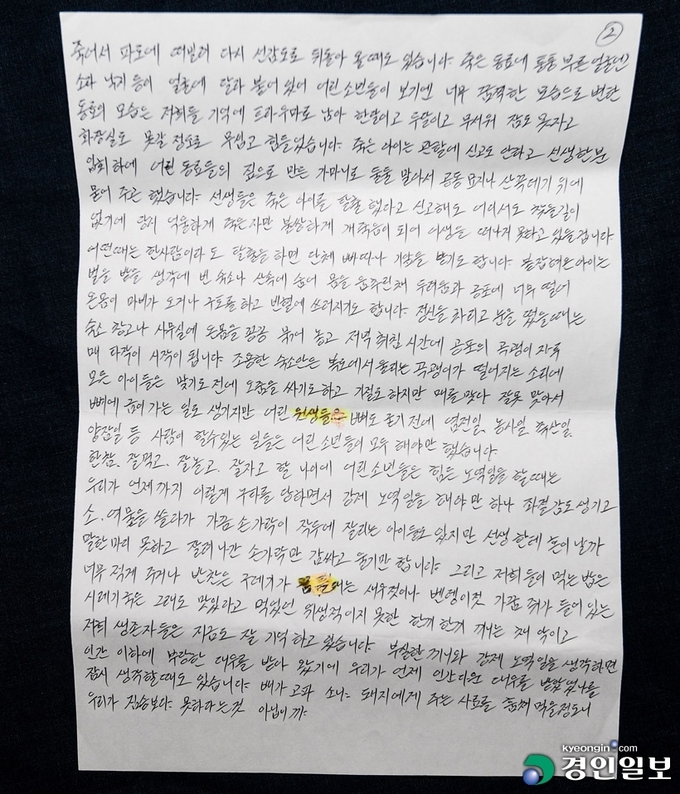 ②
죽어서 파도에 떠밀려 다시 선감도로 뒤돌아 올때도 있습니다. 죽은 동료에 퉁퉁 부른 얼굴엔
소라 낙지 등이 얼굴에 달라 붙어 있어 어린 소년들이 보기엔 너무 끔찍한 모습으로 변한
동료의 모습은 저희들 기억에 트라우마로 남아 한달이고 두달이고 무서워 잠도 못자고
화장실도 못갈 정도로 무섭고 힘들었습니다. 죽은 아이는 관할에 신고도 안하고 선생한분
입회하에 어린 동료들의 짚으로 만든 가마니로 둘둘 말아서 공동묘지나 산꼭데기 위에
묻어 주곤 했습니다. 선생들은 죽은 아이를 탈출 했다고 신고해도 어디서도 찾을길이
없기에 당시 억울하게 죽은자만 불쌍하게 개죽음이 되어 이생을 떠나지 못하고 있을겁니다
어떤때는 한사람이라도 탈출을 하면 단체 빠따나 기합을 받기도 합니다. 붙잡혀온 아이는
벌을 받을 생각에 빈 숙소나 산속에 숨어 몸을 움추린채 두려움과 공포에 너무 떨어
온몸이 마비가 오거나 구토를 하고 빈혈에 쓰러지기도 합니다. 정신을 차리고 눈을 떴을때는
숙소 창고나 사무실에 온몸을 꽁꽁 묶어 놓고 저녁 취침 시간에 공포의 곡괭이 자루
매 타작이 시작이 됩니다. 조용한 숙소안은 복도에서 울리는 곡괭이가 떨어지는 소리에
모든 아이들은 맞기도 전에 오줌을 싸기도하고 기절도 하지만 매를 맞다 잘못 맞아서
뼈에 금이 가는 일도 생기지만 어린 원생들은 뼈도 굳기 전에 염전일, 농사일, 축산일,
양잠일 등 사람이 할수있는 일들은 어린 소년들이 모두 해야만 했습니다.
한참, 잘먹고, 잘놀고, 잘자고 할 나이에 어린 소년들은 힘든 노역일을 할때는
우리가 언제까지 이렇게 구타를 당하면서 강제 노역일을 해야만 하나 좌절감도 생기고
소, 여물을 쓸다가 가끔 손가락이 작두에 잘리는 아이들도 있지만 선생 한테 혼이 날까
말한마디 못하고 잘려나간 손가락만 감싸고 울기만 합니다. 그리고 저희들이 먹는 밥은
너무 적게 주거나 반찬은 구데기가 때는 새우젓이나 벤뎅이젓 가끔 쥐가 들어 있는
시레기국는 그래도 맛있다고 먹었던 위생적이지 못한 한끼 한끼 끼니
저희 생존자들은 지금도 잘 기억 하고 있습니다. 부실한 끼니와 강제 노역일을 생각하면
인간 이하에 부당한 대우를 받아 왔기에 우리가 언제 인간다운 대우를 받았었나를
잠시 생각할때도 있습니다. 배가 고파 소나 돼지에게 주는 사료를 훔쳐 먹을정도니
우리가 짐승보다 못하다는것 아닙니까.
kyeongin.com
경인일보